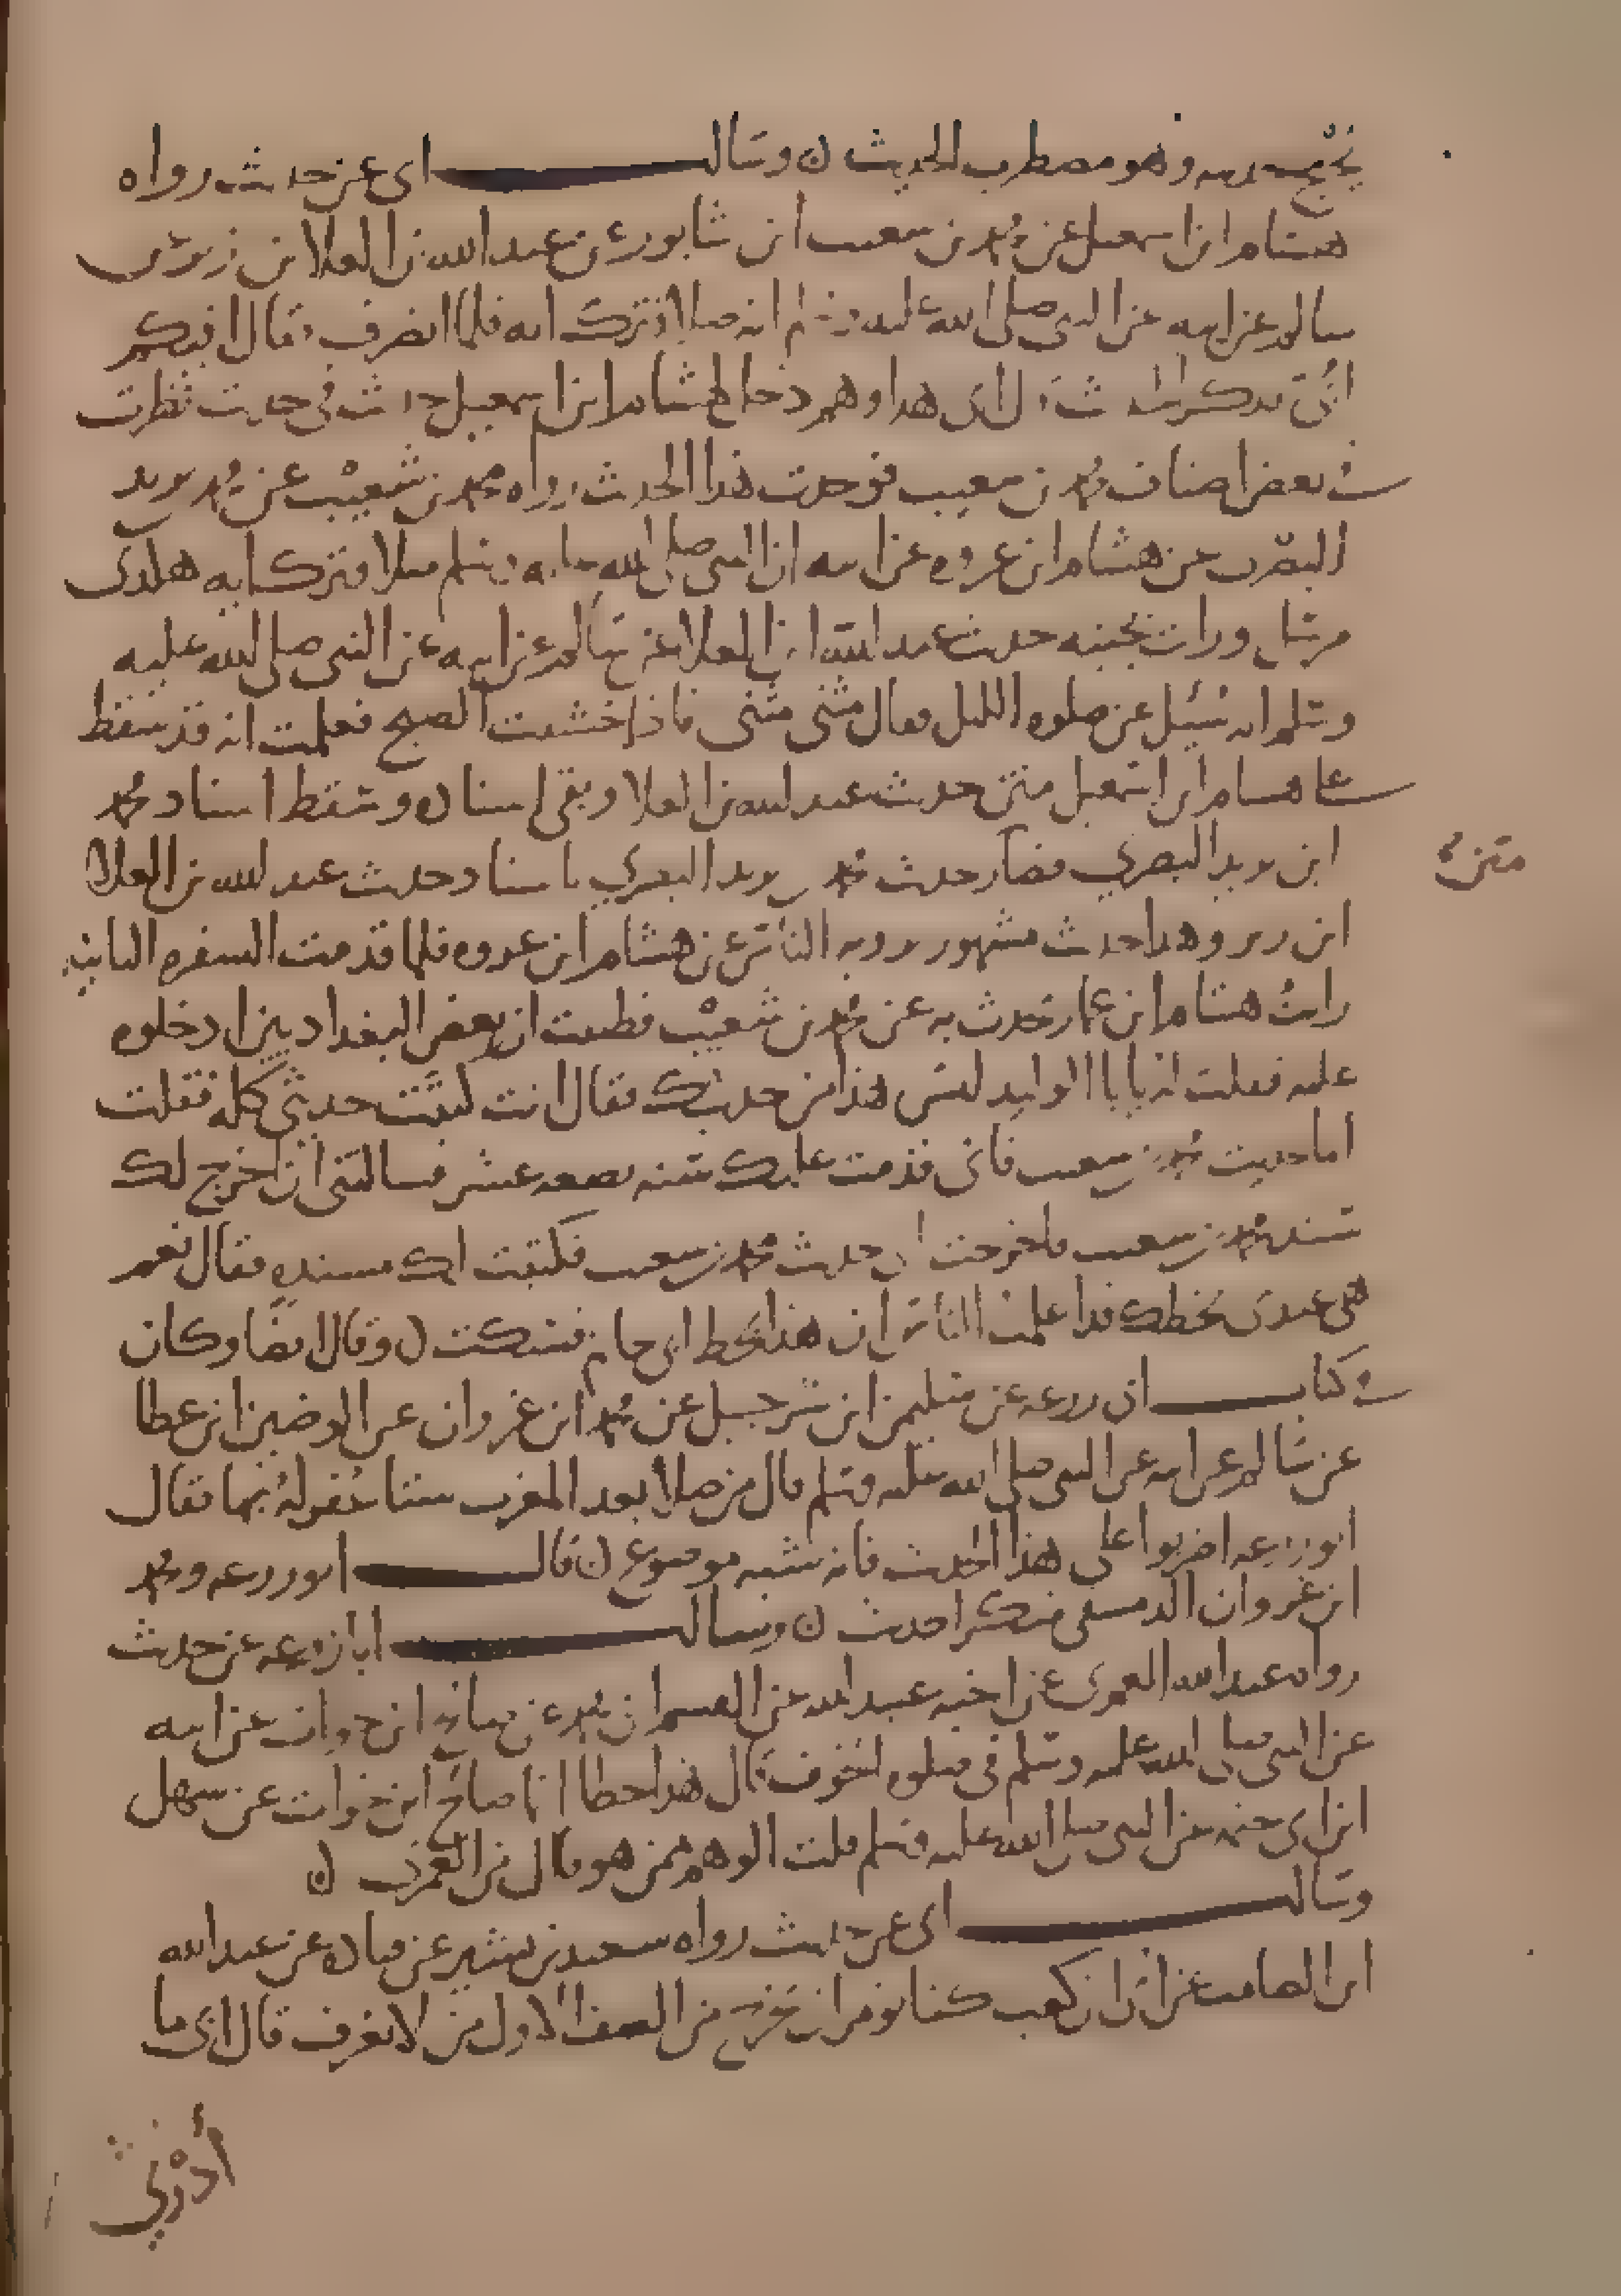 يحتج بحديثه وهو مضطرب الحديث ن وسالت ابى عن حديث رواه
هشام ابن اسمعيل عن محمد بن شعيب ابن شابور عن عبد الله بن العلا بن زبر عن
سالم عن ابيه عن النبى صلى الله عليه وسلم انه صلا فترك ايه فلما انصرف قال افيكم
ابى قال ابى هذا وهم دخل لهشام ابن اسمعيل حديث فى حديث نظرت
فى بعض اصناف محمد بن شعيب فوجدت هذا الحديث رواه محمد بن شعيب عن محمد بن يزيد
البصرى عن هشام ابن عروه عن ابيه ان النبى صلى الله عليه وسلم صلا فترك ايه هكذى
مرسل ورايت بجنبه حديث عبد الله ابن العلا عن سالم عن ابيه عن النبى صلى الله عليه
وسلم انه سيل عن صلوه الليل فقال مثنى مثنى فاذا خشيت الصبح فعلمت انه قد سقط
على هشام ابن اسمعيل متن حديث عبد الله بن العلا وبقى اسناده وسقط اسناد محمد
ابن يزيد البصري فصار حديث محمد بن يزيد البصري باسناد حديث عبد الله بن العلا
متن
ابن زبر وهذا حديث مشهور يرويه الناس عن هشام ابن عروه فلما قدمت السفره الثانيه
رايت هشام ابن عمار يحدث به عن محمد بن شعيب فظننت ان بعض البغداديين ادخلوه
عليه فقلت له يا ابا الوليد ليس هذا من حديثك فقال انت كتبت حديثي كله فقلت
اما حديث محمد بن شعيب فانى قدمت عليك سنه بضعه عشر فسالتنى ان اخرج لك
مسند محمد بن شعيب فاخرجت الى حديث محمد بن شعيب فكتبت لك مسنده فقال نعم
هى عندى بخطك قد اعلمت الناس ان هذا بخط ابى حاتم فسكت ن وقال ايضا وكان
فى كتاب ابى زرعه عن سليمن ابن شرحبيل عن محمد ابن غزوان عن الوضين ابن عطا
عن سالم عن ابيه عن النبى صلى الله عليه وسلم قال من صلا بعد المغرب ستا غفر له بها فقال
ابو زرعه اضربوا على هذا الحديث فانه شبه موضوع ن قال ابو زرعه ومحمد
ابن غزوان الدمشقى منكر الحديث ن وسالت ابا زرعه عن حديث
رواه عبد الله العمرى عن اخيه عبيد الله عن القسم ابن محمد عن صالح ابن خوات عن ابيه
عن النبى صلى الله عليه وسلم فى صلوه الخوف قال هذا خطا انما صالح ابن خوات عن سهل
ابن ابى حثمه عن النبى صلى الله عليه وسلم قلت الوهم ممن هو قال من العمرى ن
وسالت ابى عن حديث رواه سعيد بن بشير عن قتاده عن عبد الله
ابن الصامت عن ابى ابن كعب كنا نومر ان نخرج من الصف الاول من لا نعرف قال ابى ما
أدري